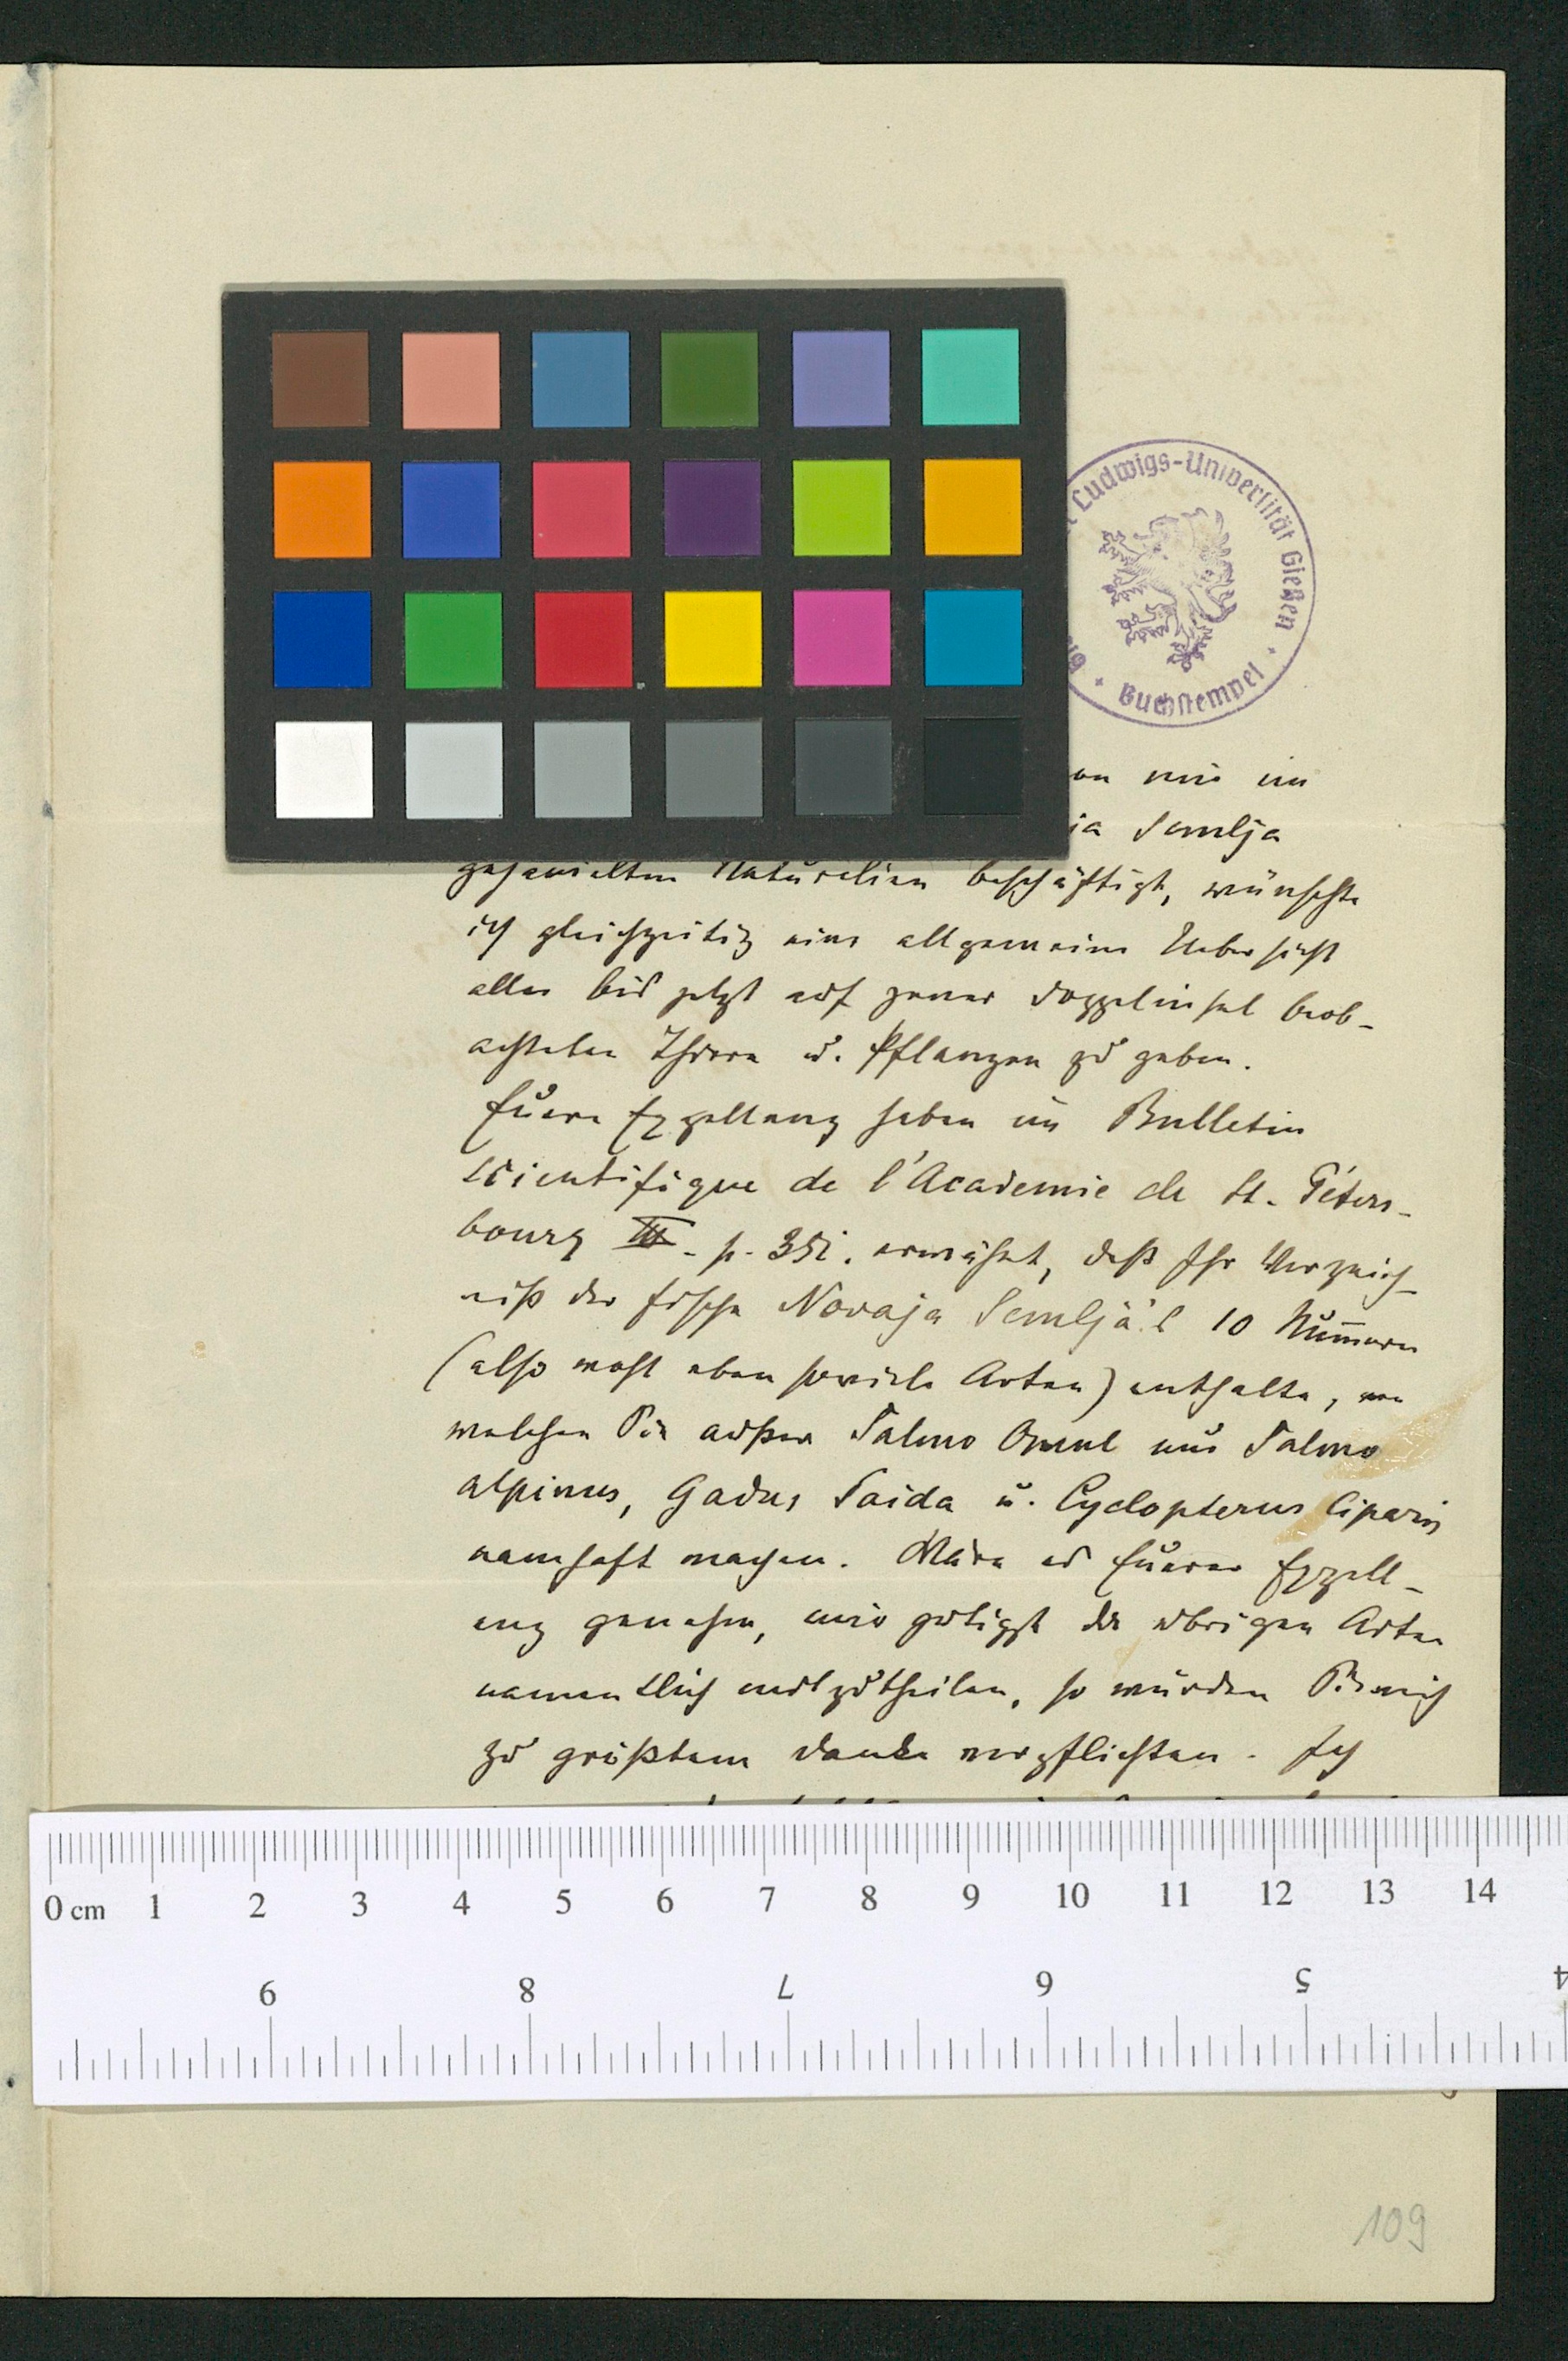 Ludwigs-Universität Gießen
Buchstempel
mir im
Semlja
gesammelten Naturalien beschäftigt, wünschte
ich gleichzeitig eine allgemeine Uebersicht
aller bis jetzt auf jener Doppelinsel beob-
achteten Thiere u. Pflanzen zu geben.
Euere Exzellenz haben im Bulletin
scientifique de l'Academie de St. Péters-
bourg III. p. 351. erwähnt, daß Ihr Verzeich-
niß der Fische Novaja Semlja's 10 Num̅ern
(also wohl eben soviele Arten) enthalte, von
welchen Sie außer Salmo Omul nur Salmo
alpinus, Gadus Saida u. Cyclopterus Liparis
namhaft machen. Wäre es Euerer Exzell-
enz genehm, mir gütigst die übrigen Arten
namentlich mitzutheilen, so würden Sie mich
zu größtem Danke verpflichten. Ich
0 cm 1 2 3 4 5 6 7 8 9 10 11 12 13 14
9 8 7 6 5 4
109